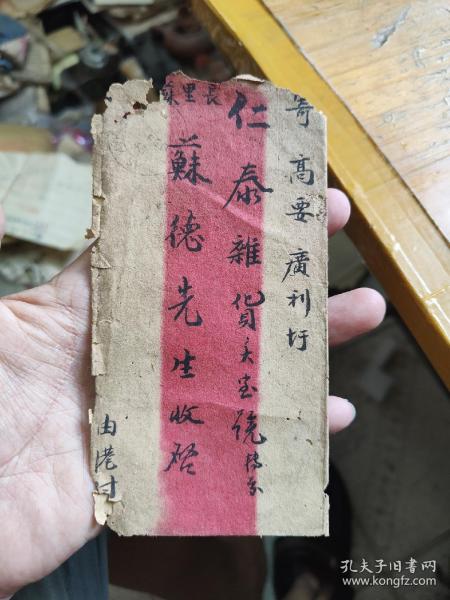 寄高要廣利圩
仁泰雜貨大宝號轉交
長里蘇
蘇德先生收啓
由港付
孔夫子旧书网
www.kongfz.com